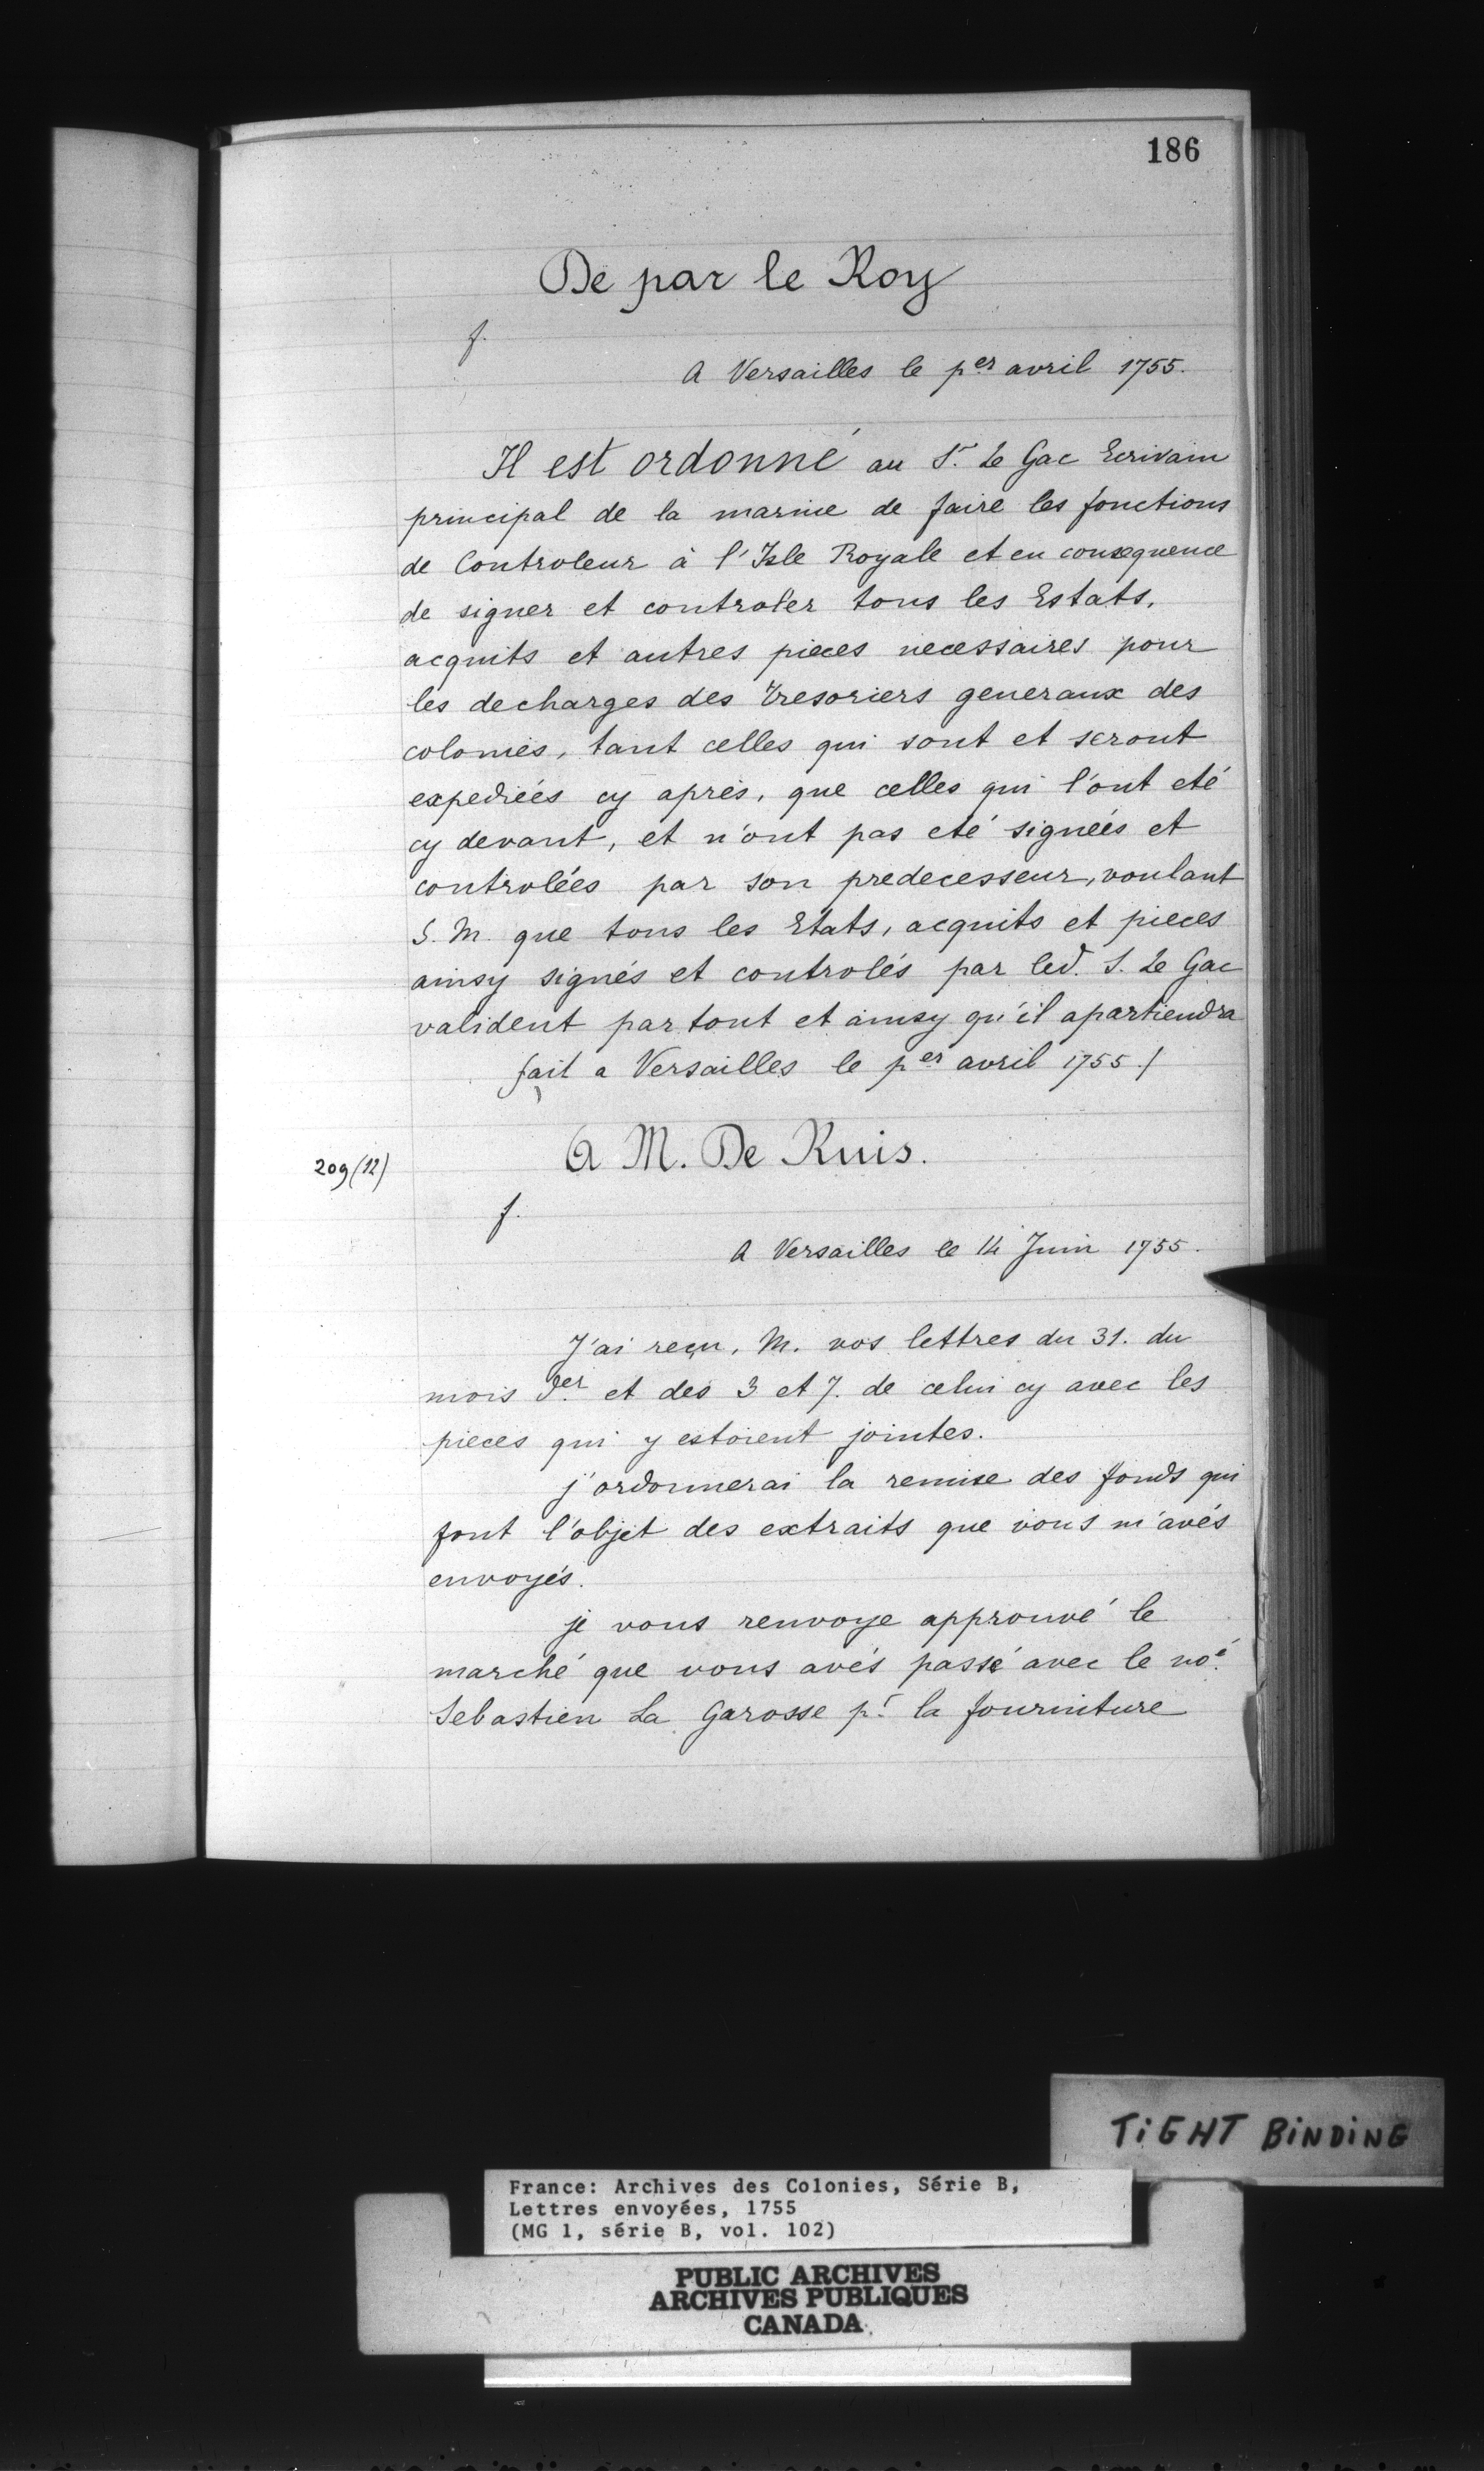 186
De par le Roy
f.
A Versailles le per avril 1755.
Il est ordonné au Sr. Le Gac Ecrivain
principal de la marine de faire les fonctions
de Controleur à l'Isle Royale et en consequence
de signer et controler tous les Estats,
acquits et autres pieces necessaires pour
les decharges des Tresoriers generaux des
colonies, tant celles qui sont et seront
expediées cy aprés, que celles qui l'ont eté
cy devant, et n'ont pas eté signées et
controlées par son predecesseur, voulant
S. M. que tous les Etats, acquits et pieces
ainsy signés et controlés par led. S. Le Gac
valident partout et ainsy qu'il apartiendra
fait a Versailles le per avril 1755 /
209 (12)
A M. De Ruis.
f.
A Versailles le 14 Juin 1755.
J'ai reçu, M. vos lettres du 31. du
mois der. et des 3 et 7. de celui cy avec les
pieces qui y estoient jointes.
j'ordonnerai la remise des fonds qui
font l'objet des extraits que vous m'avés
envoyés.
je vous renvoye approuvé le
marché que vous avés passé avec le noé.
Sebastien La Garosse pr. la fourniture
TIGHT BINDING
France: Archives des Colonies, Série B,
Lettres envoyées, 1755
(MG 1, série B, vol. 102)
PUBLIC ARCHIVES
ARCHIVES PUBLIQUES
CANADA